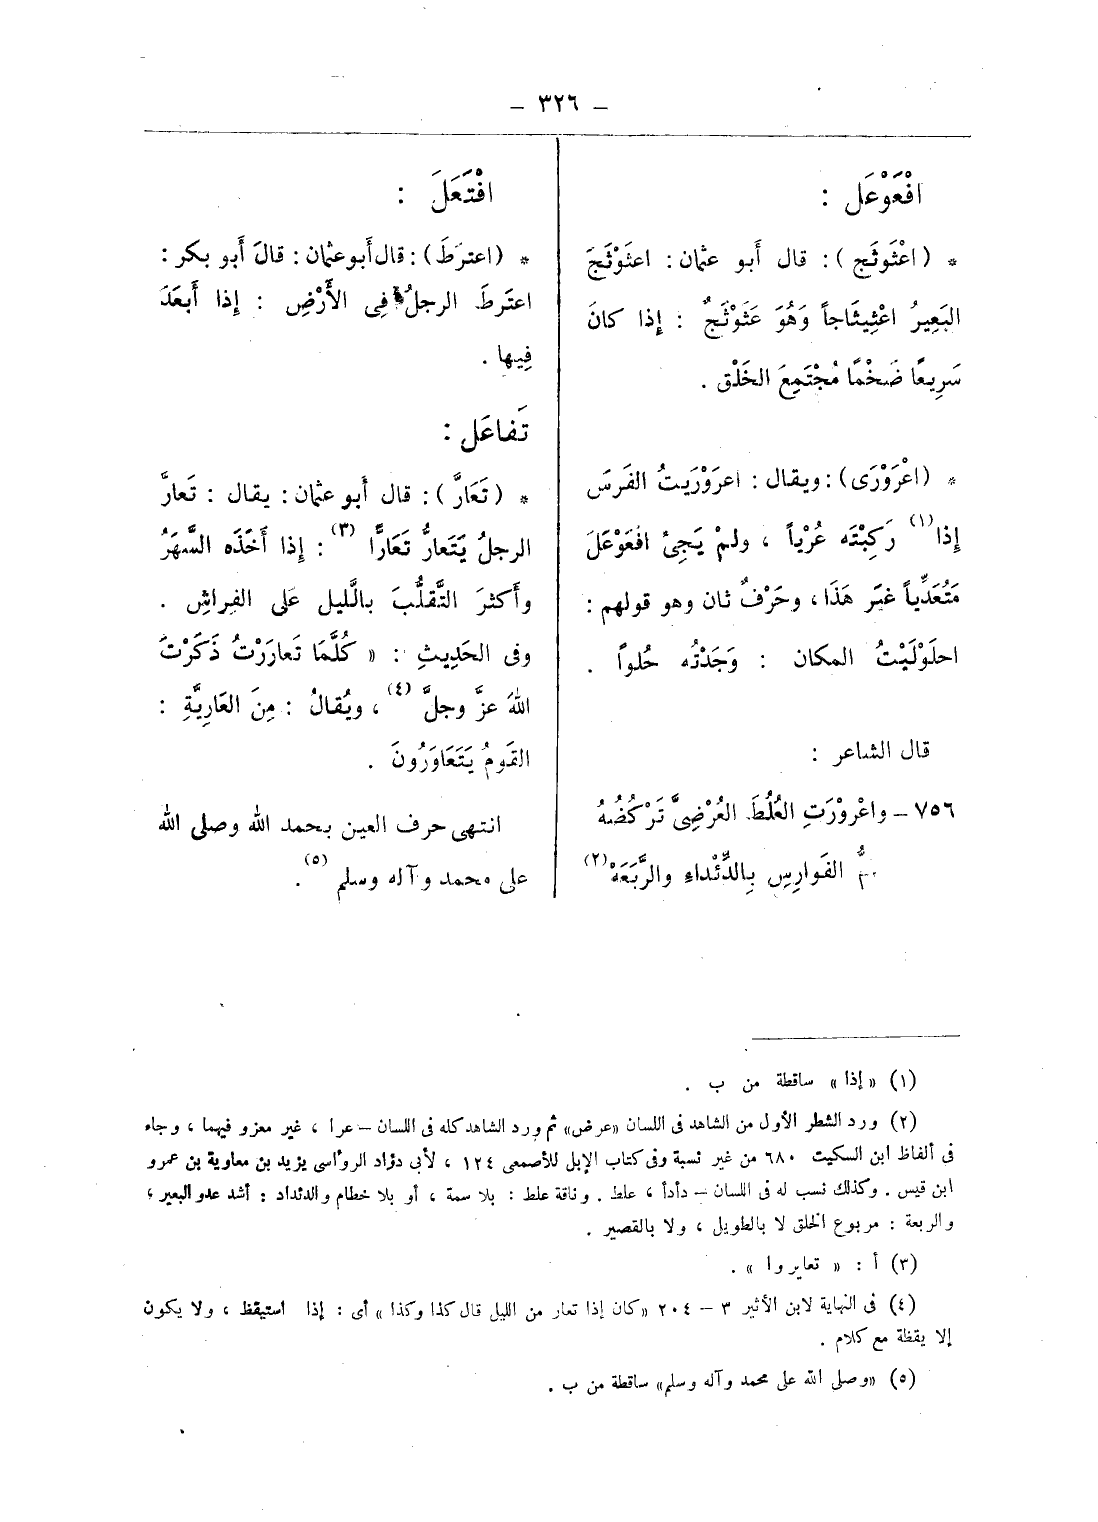 – ٣٢٦ –
افْعَوْعَل :
* ( اعْثَوثَج ) : قال أَبو عثمان : اعثَوْثَجَ
البَعِيرُ اعْثِيثَاجاً وَهُوَ عَثَوْثَجٌ : إذا كانَ
سَرِيعًا ضَخْمًا مُجْتَمِعَ الخَلْق .
* (اعْرَوْرَى) : ويقال : اعرَوْرَيتُ الفَرَسَ
إذا (١) رَكِبْتَه عُرْياً ، ولمْ يَجِئْ افْعَوْعَلَ
مَتُعَدِّياً غيَر هَذَا ، وحَرْفٌ ثان وهو قولهم :
احلَوْلَيْتُ المكان : وَجَدْتُه حُلواً .
قال الشاعر :
٧٥٦ – واعْرَوْرَتِ العُلُطَ العُرْضِىَّ تَرْكُضُهُ
مُّ الفَوارِسِ بِالدِّئْداءِ والرَّبَعَهْ (٢)
افْتَعَلَ :
* (اعترَطَ) : قال أَبوعثمان : قالَ أَبو بكر :
اعتَرطَ الرجلُ فِى الأَرْضِ : إذا أَبعَدَ
فِيها .
تَفاعَل :
* ( تَعَارَّ ) : قال أَبو عثمان : يقال : تَعارَّ
الرجلُ يَتَعارُّ تَعَارًّا (٣) : إذا أَخَذَه السَّهَرُ
وأَكثرَ التَّقلُّبَ بالَّليل عَلى الفِراشِ .
وفى الحَدِيثِ : « كُلَّمَا تَعارَرْتُ ذَكَرْتُ
اللهَ عزَّ وجلَّ (٤) ، ويُقالُ : مِنَ العَارِيَّةِ :
القَومُ يَتَعَاوَرُونَ .
انتهى حرف العين بحمد الله وصلى الله
على محمد وآله وسلم (٥) .
(١) «إذا» ساقطة من ب .
(٢) ورد الشطر الأول من الشاهد فى اللسان «عرض» ثم ورد الشاهد كله فى اللسان – عرا ، غير معزو فيهما ، وجاء
فى ألفاظ ابن السكيت ٦٨٠ من غير نسبة وفى كتاب الإبل للأصمعى ١٢٤ ، لأبى دؤاد الرؤاسى يزيد بن معاوية بن عمرو
ابن قيس . وكذلك نسب له فى اللسان – دأدأ ، علط . وناقة علط : بلا سمة ، أو بلا خطام والدئداد : أشد عدو البعير ؛
والربعة : مربوع الخلق لا بالطويل ، ولا بالقصير .
(٣) أ : « تعايروا » .
(٤) فى النهاية لابن الأثير ٣ – ٢٠٤ «كان إذا تعار من الليل قال كذا وكذا» أى : إذا استيقظ ، ولا يكون
إلا يقظة مع كلام .
(٥) «وصلى الله على محمد وآله وسلم» ساقطة من ب .